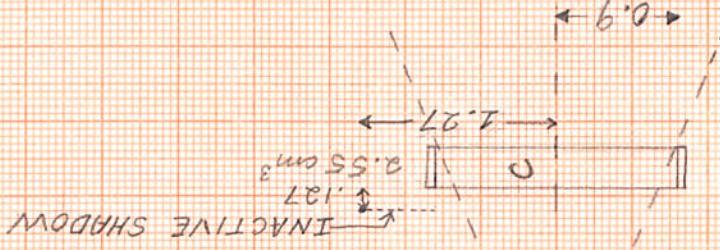 INACTIVE SHADOW
.127
2.55 cm³
C
1.27
0.9